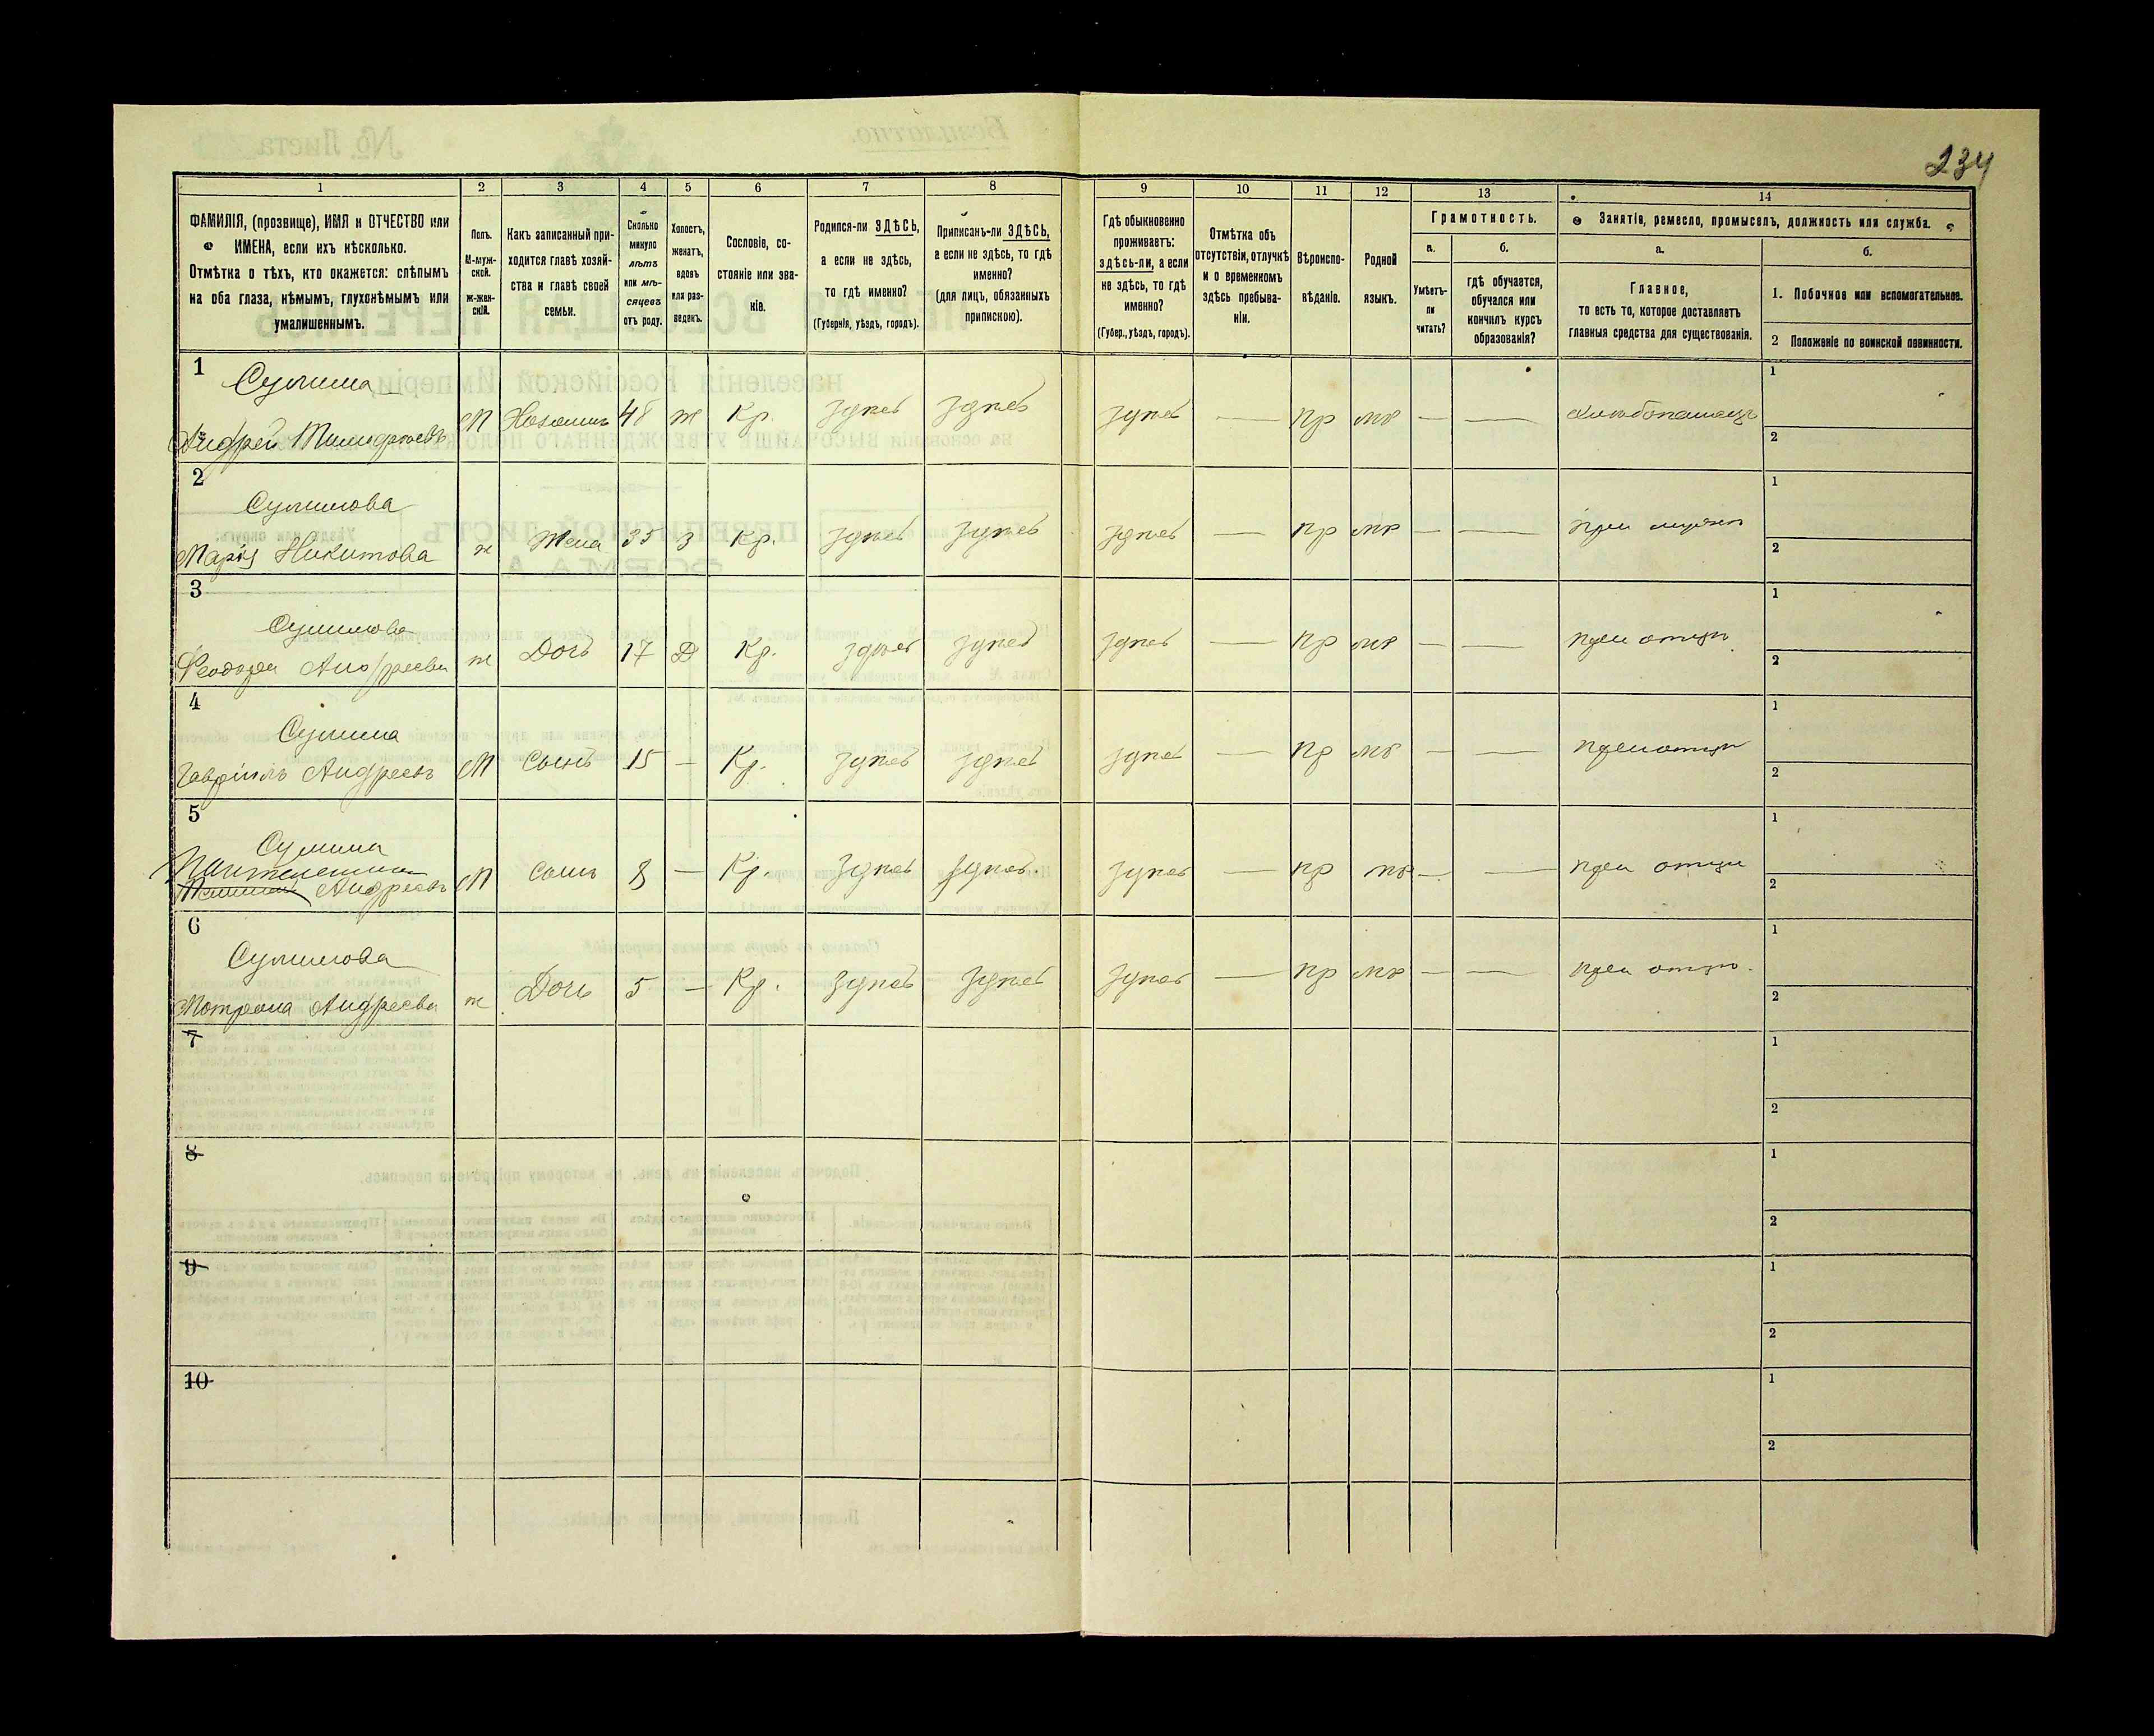 234
1 2 3 4 5 6 7 8 9 10 11 12 13 14
ФАМИЛІЯ, (прозвище), ИМЯ и ОТЧЕСТВО или
ИМЕНА, если ихъ нѣсколько.
Отмѣтка о тѣхъ, кто окажется: слѣпымъ
на оба глаза, нѣмымъ, глухонѣмымъ или
умалишеннымъ.
Полъ.
М-муж-
ской.
ж-жен-
скій.
Какъ записанный при-
ходится главѣ хозяй-
ства и главѣ своей
семьи.
Сколько
минуло
лѣтъ
или мѣ-
сяцевъ
отъ роду.
Холостъ,
женатъ,
вдовъ
или раз-
веденъ.
Сословіе, со-
стояніе или зва-
ніе.
Родился-ли ЗДѢСЬ,
а если не здѣсь,
то гдѣ именно?
(Губернія, уѣздъ, городъ).
Приписанъ-ли ЗДѢСЬ,
а если не здѣсь, то гдѣ
именно?
(для лицъ, обязанныхъ
припискою).
Гдѣ обыкновенно
проживаетъ:
здѣсь-ли, а если
не здѣсь, то гдѣ
именно?
(Губер., уѣздъ, городъ).
Отмѣтка объ
отсутствіи, отлучкѣ
и о временномъ
здѣсь пребыва-
ніи.
Вѣроиспо-
вѣданіе.
Родной
языкъ.
Грамотность.
а.
Умѣетъ-
ли
читать?
б.
гдѣ обучается,
обучался или
кончилъ курсъ
образованія?
Занятіе, ремесло, промыселъ, должность или служба.
а.
Главное,
то есть то, которое доставляетъ
главныя средства для существованія.
б.
1. Побочное или вспомогательное.
2 Положеніе по воинской повинности.
1 Сулима
Андрей М Хозяинъ 48 ж Кр. здѣсь здѣсь здѣсь — пр мр — — хлѣбопашецъ 1
2
2 Сулимова
Марія Никитова ж Жена 35 З Кр. здѣсь здѣсь здѣсь — пр мр — — при мужѣ 1
2
3 Сулимова
Феодора Андреева ж Дочь 17 Д Кр. здѣсь здѣсь здѣсь — пр мр — — при отцѣ 1
2
4 Сулима
Гавріилъ Андреевъ М Сынъ 15 — Кр. здѣсь здѣсь здѣсь — пр мр — — при отцѣ 1
2
5 Сулима
Пантелеимон
Андреевъ М Сынъ 8 — Кр. здѣсь здѣсь здѣсь — пр мр — — при отцѣ 1
2
6 Сулимова
Мотрона Андреева ж Дочь 5 — Кр. здѣсь здѣсь здѣсь — пр мр — — при отцѣ 1
2
7 1
2
8 1
2
9 1
2
10 1
2